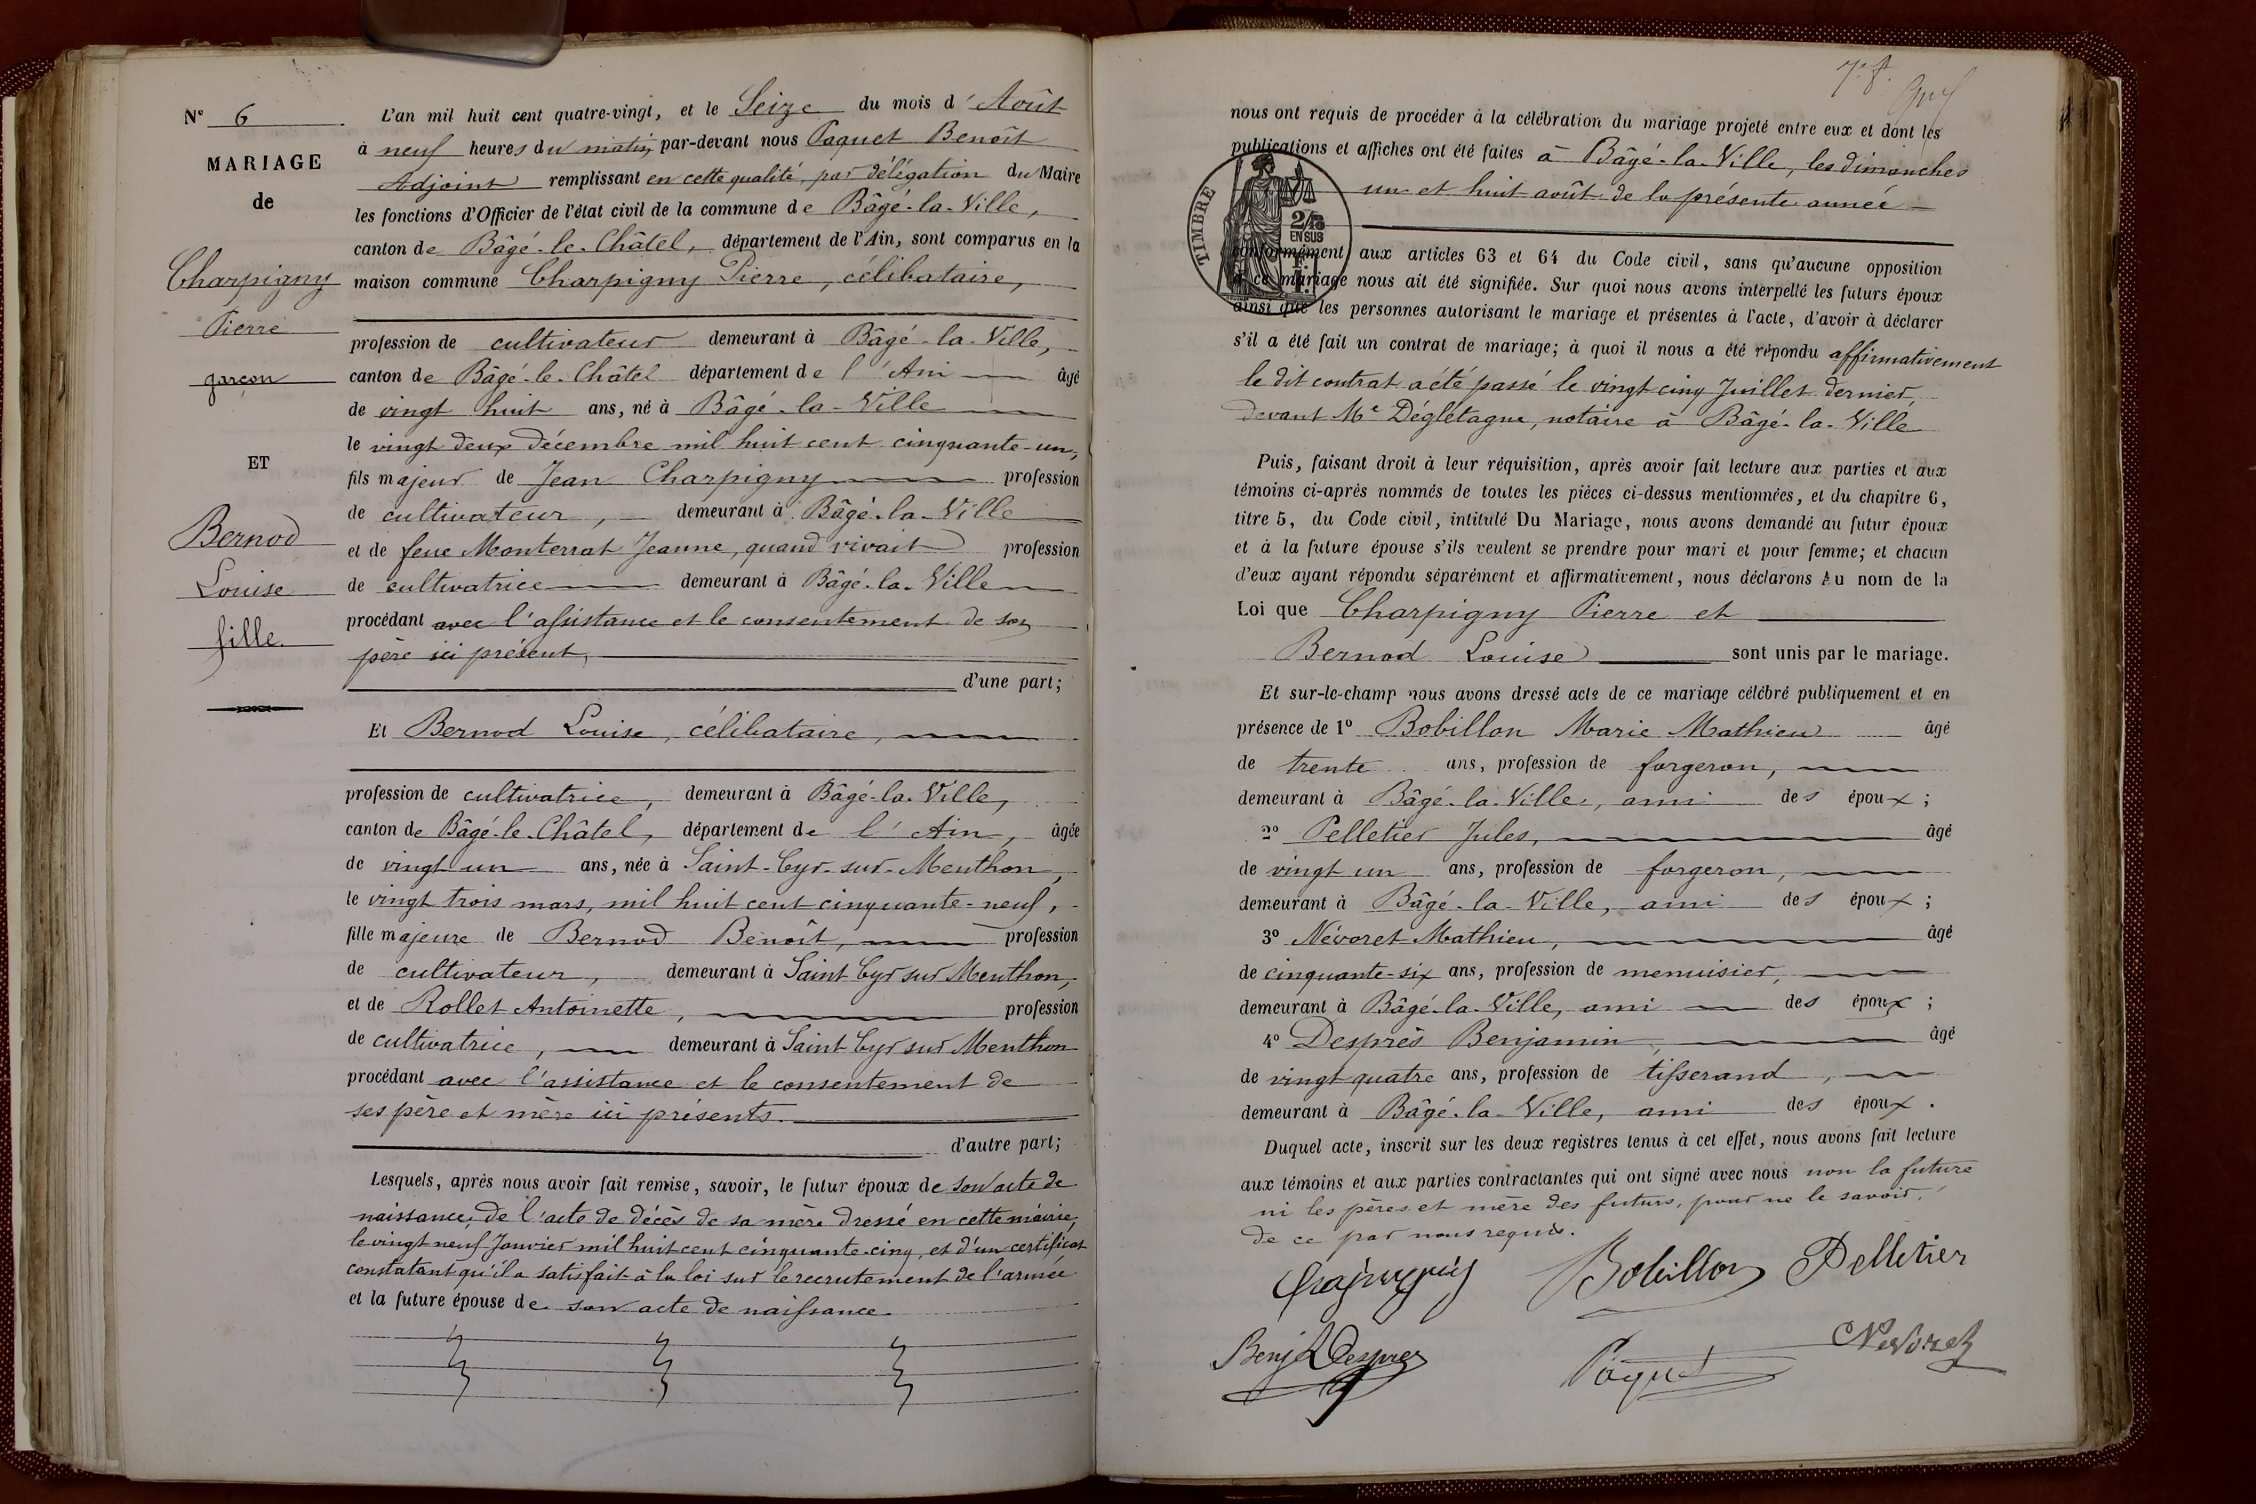 N° 6
MARIAGE
de
Charpigny
Pierre
garçon
ET
Bernod
Louise
fille.
L'an mil huit cent quatre-vingt, et le Seize du mois d'Août
à neuf heures du matin, par-devant nous Paquet Benoît
Adjoint remplissant en cette qualité, par délégation du Maire
les fonctions d'Officier de l'état civil de la commune de Bâgé-la-Ville,
canton de Bâgé-le-Châtel, département de l'Ain, sont comparus en la
maison commune Charpigny Pierre, célibataire,
profession de cultivateur demeurant à Bâgé-la-Ville,
canton de Bâgé-le-Châtel département de l'Ain âgé
de vingt huit ans, né à Bâgé-la-Ville
le vingt deux décembre mil huit cent cinquante-un,
fils majeur de Jean Charpigny profession
de cultivateur, demeurant à Bâgé-la-Ville
et de feue Monterrat Jeanne, quand vivait profession
de cultivatrice demeurant à Bâgé-la-Ville
procédant avec l'assistance et le consentement de son
père ici présent,
d'une part;
Et Bernod Louise, célibataire,
profession de cultivatrice, demeurant à Bâgé-la-Ville,
canton de Bâgé-le-Châtel, département de l'Ain, âgée
de vingt un ans, née à Saint-Cyr-sur-Menthon,
le vingt trois mars, mil huit cent cinquante-neuf,
fille majeure de Bernod Benoît, profession
de cultivateur, demeurant à Saint Cyr sur Menthon,
et de Rollet Antoinette, profession
de cultivatrice, demeurant à Saint Cyr sur Menthon
procédant avec l'assistance et le consentement de
ses père et mère ici présents.
d'autre part;
Lesquels, après nous avoir fait remise, savoir, le futur époux de son acte de
naissance, de l'acte de décès de sa mère dressé en cette mairie,
le vingt neuf Janvier mil huit cent cinquante-cinq, et d'un certificat
constatant qu'il a satisfait à la loi sur le recrutement de l'armée
et la future épouse de son acte de naissance.
nous ont requis de procéder à la célébration du mariage projeté entre eux et dont les
publications et affiches ont été faites à Bâgé-la-Ville, les dimanches
un et huit août de la présente année
TIMBRE
2/10
EN SUS
conformément aux articles 63 et 64 du Code civil, sans qu'aucune opposition
à ce mariage nous ait été signifiée. Sur quoi nous avons interpellé les futurs époux
ainsi que les personnes autorisant le mariage et présentes à l'acte, d'avoir à déclarer
s'il a été fait un contrat de mariage; à quoi il nous a été répondu affirmativement
le dit contrat a été passé le vingt cinq Juillet dernier,
devant Me Déglétagne, notaire à Bâgé-la-Ville
Puis, faisant droit à leur réquisition, après avoir fait lecture aux parties et aux
témoins ci-après nommés de toutes les pièces ci-dessus mentionnées, et du chapitre 6,
titre 5, du Code civil, intitulé Du Mariage, nous avons demandé au futur époux
et à la future épouse s'ils veulent se prendre pour mari et pour femme; et chacun
d'eux ayant répondu séparément et affirmativement, nous déclarons Au nom de la
Loi que Charpigny Pierre et
Bernod Louise sont unis par le mariage.
Et sur-le-champ nous avons dressé acte de ce mariage célébré publiquement et en
présence de 1° Bobillon Marie Mathieu âgé
de trente ans, profession de forgeron,
demeurant à Bâgé-la-Ville, ami des époux;
2° Pelletier Jules, âgé
de vingt un ans, profession de forgeron,
demeurant à Bâgé-la-Ville, ami des époux;
3° Névoret Mathieu, âgé
de cinquante-six ans, profession de menuisier,
demeurant à Bâgé-la-Ville, ami des époux;
4° Desprès Benjamin, âgé
de vingt quatre ans, profession de tisserand,
demeurant à Bâgé-la-Ville, ami des époux.
Duquel acte, inscrit sur les deux registres tenus à cet effet, nous avons fait lecture
aux témoins et aux parties contractantes qui ont signé avec nous non la future
ni les pères et mère des futurs, pour ne le savoir,
de ce par nous requis.
Bobillon Pelletier
Benj Desprès Paquet Nevoret